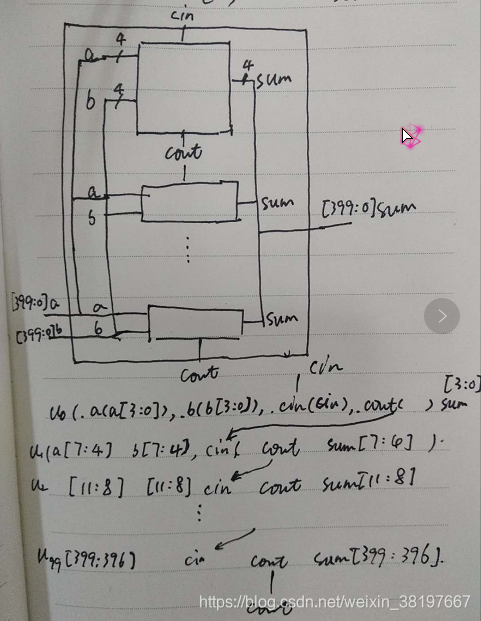 cin
a 4
4 sum
b 4
cout
a
b sum
[399:0] sum
[399:0] a a
[399:0] b b sum
cout cin
u0 (.a(a[3:0]), .b(b[3:0]), .cin(cin), .cout( ) sum [3:0]
u1 (a[7:4] b[7:4], cin( cout sum[7:4] ).
u2 [11:8] [11:8] cin cout sum[11:8]
u99 [399:396] cin cout sum[399:396].
cout
https://blog.csdn.net/weixin_38197667